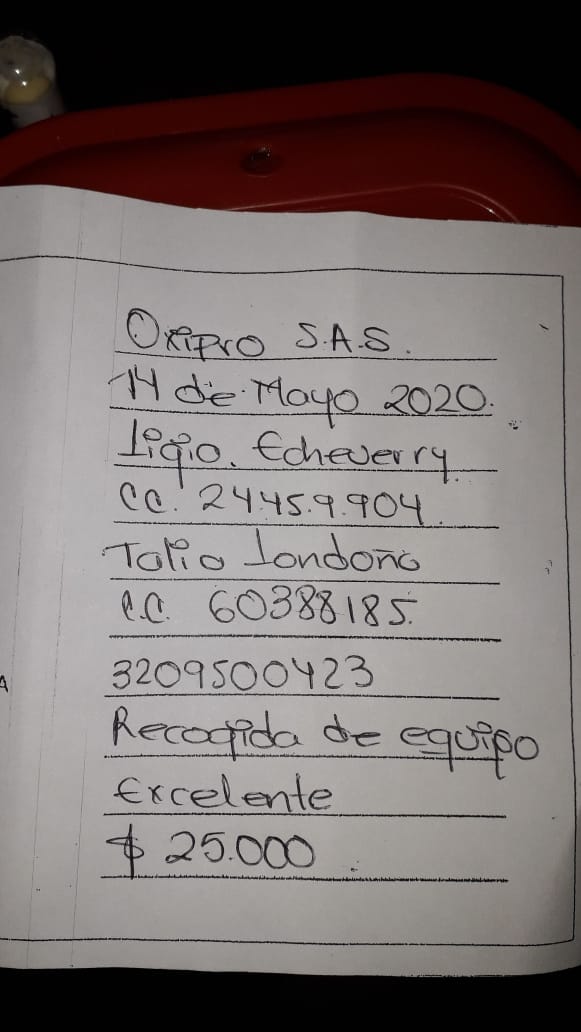 Oxipro S.A.S.
14 de Mayo 2020.
Ligia. Echeverry.
CC. 24.459.904.
Talia Londoño
C.C. 60388185.
3209500423
Recogida de equipo
Excelente
$ 25.000
A